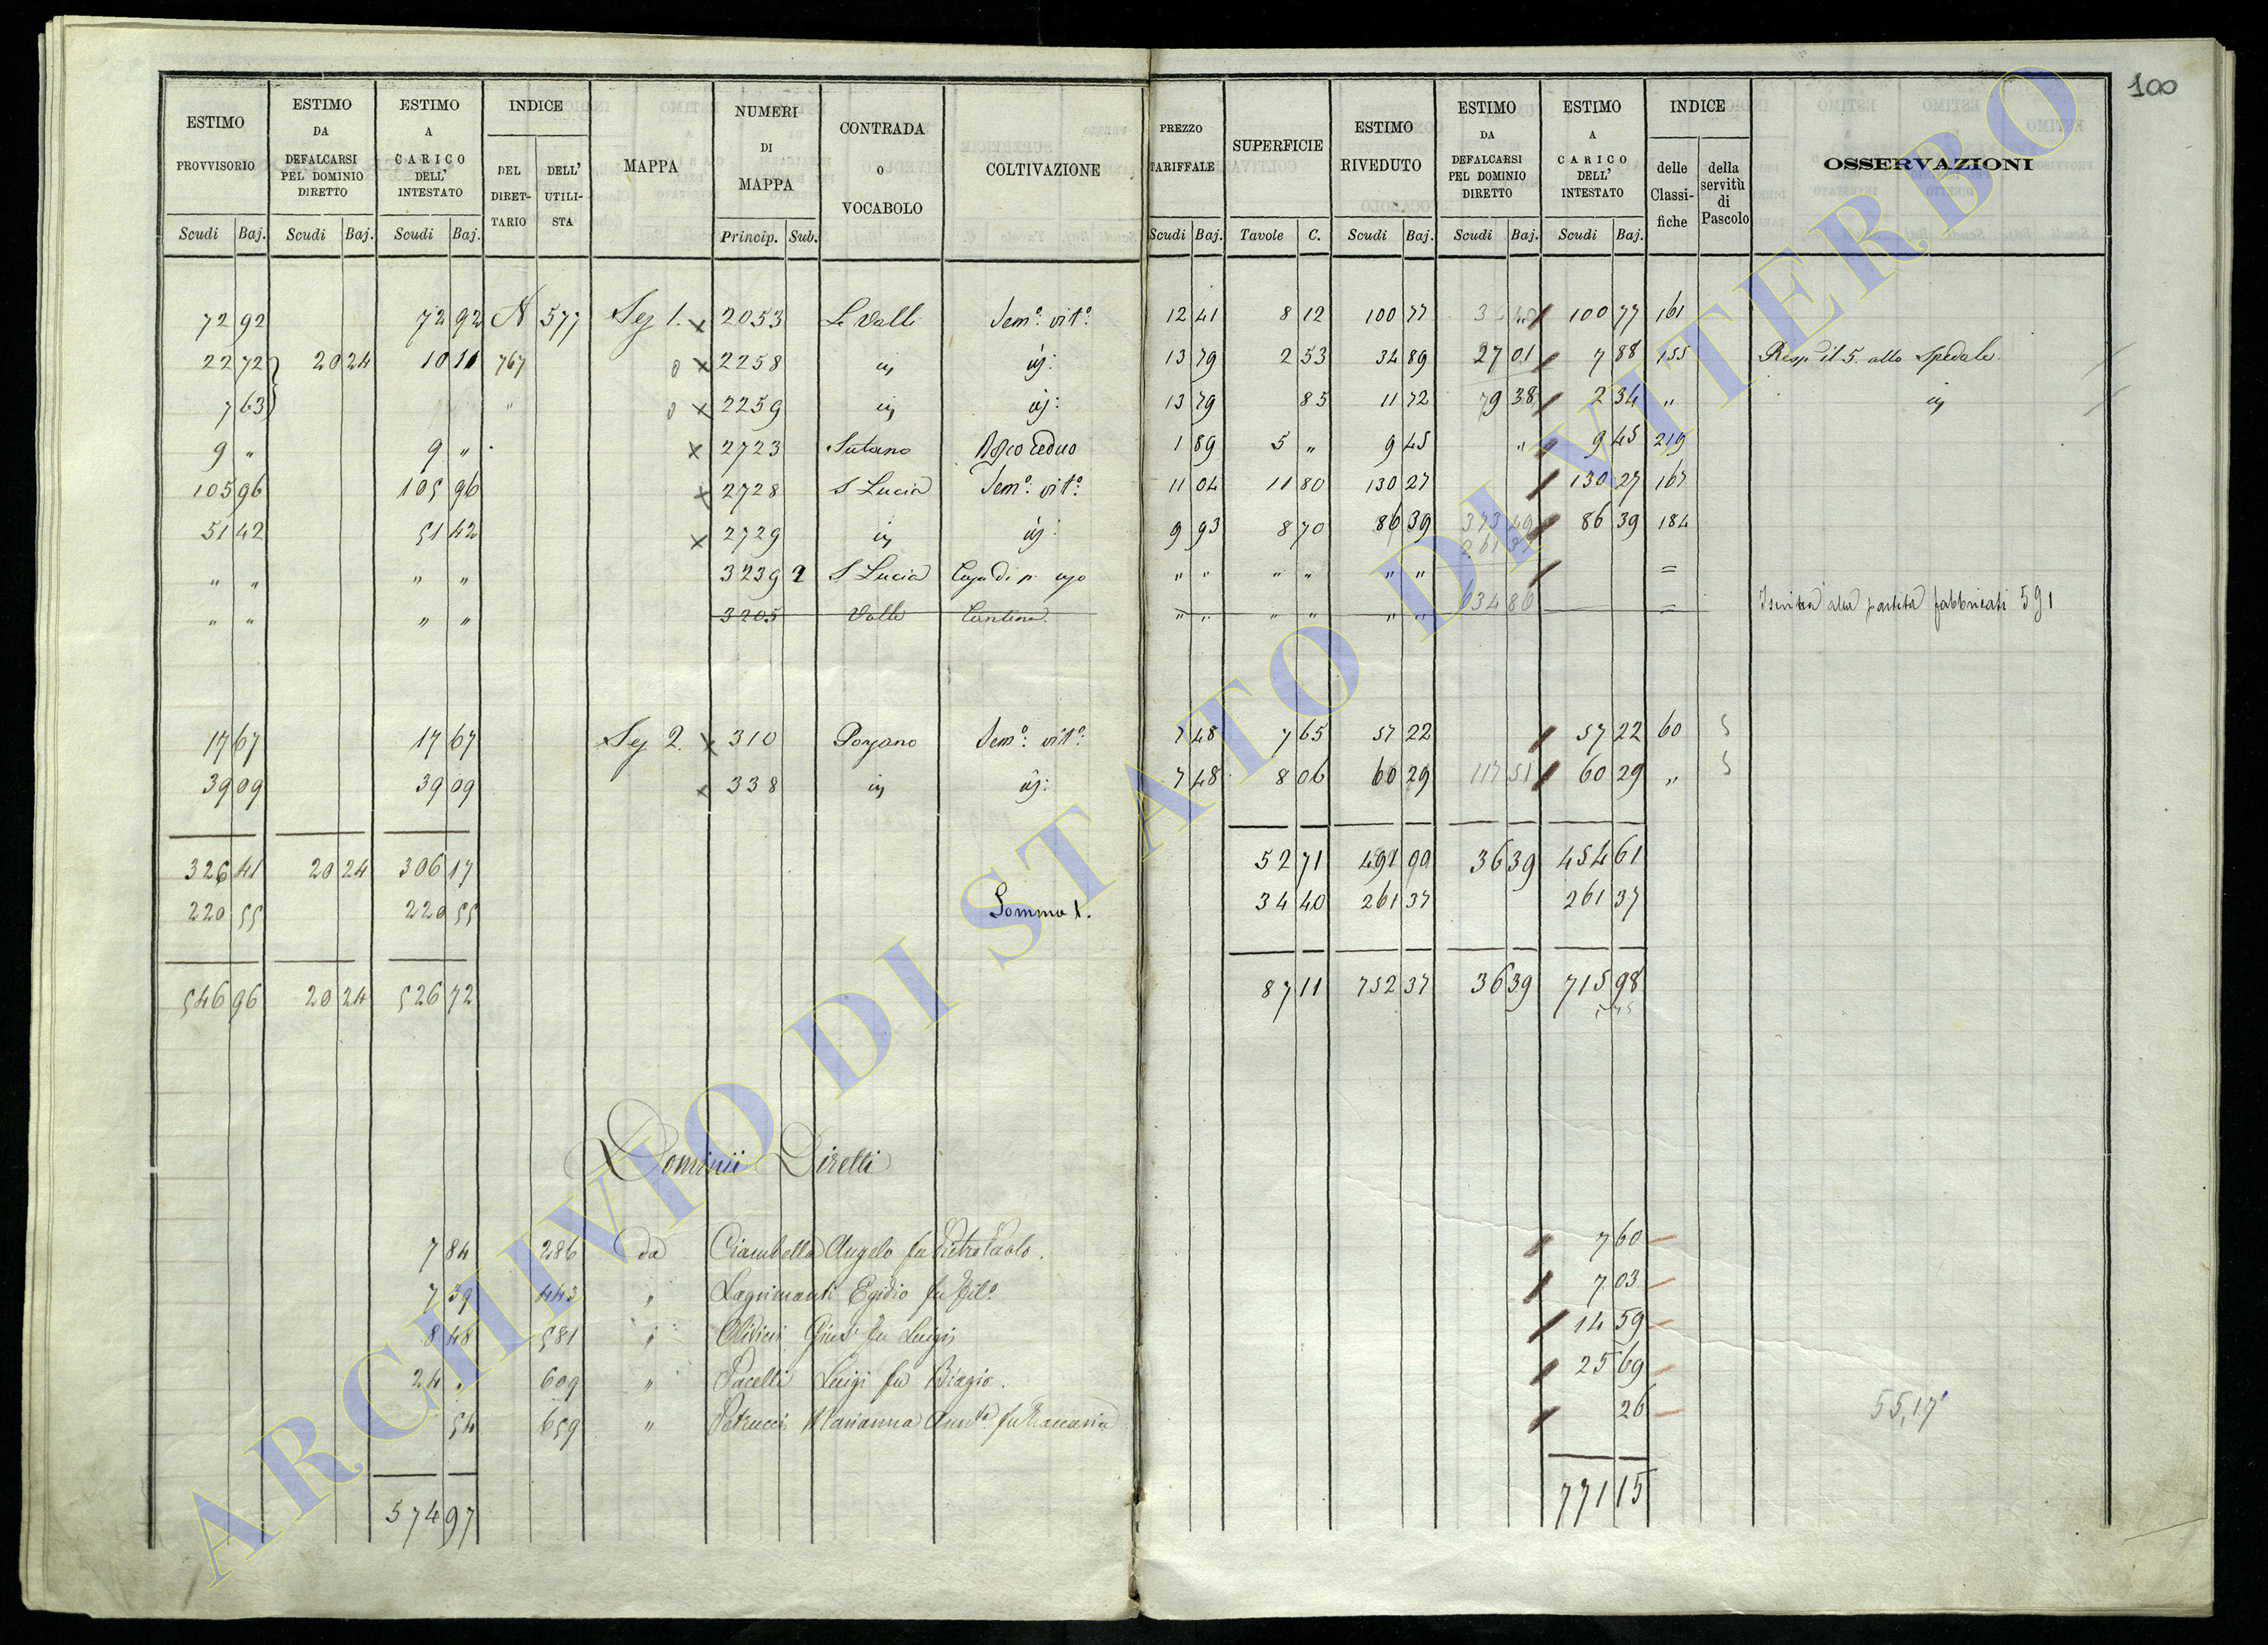 100
ESTIMO PROVVISORIO | ESTIMO DA DEFALCARSI PEL DOMINIO DIRETTO | ESTIMO A CARICO DELL' INTESTATO | INDICE | MAPPA | NUMERI DI MAPPA | CONTRADA O VOCABOLO | COLTIVAZIONE | PREZZO TARIFFALE | SUPERFICIE | ESTIMO RIVEDUTO | ESTIMO DA DEFALCARSI PEL DOMINIO DIRETTO | ESTIMO A CARICO DELL' INTESTATO | INDICE | OSSERVAZIONI
DEL DIRETTARIO | DELL' UTILISTA | delle Classifiche | della servitù di Pascolo
Scudi Baj. | Scudi Baj. | Scudi Baj. | Princip. Sub. | Scudi Baj. | Tavole C. | Scudi Baj. | Scudi Baj. | Scudi Baj.
72 92 | 72 92 | N 577 | Sez 1. x | 2053 | Le Valli | Sem.o vit.o | 12 41 | 8 12 | 100 77 | 100 77 | 161
22 72 | 20 24 | 10 11 | 767 | x | 2258 | 13 79 | 2 53 | 34 89 | 27 01 | 7 88 | 155 | Resp. il 5. allo Spedale.
7 63 | x | 2259 | 13 79 | 85 | 11 72 | 9 38 | 2 34 | "
9 " | 9 " | x | 2723 | Sutano | Bosco ceduo | 1 89 | 5 " | 9 45 | " | 9 45 | 219
105 96 | 105 96 | x | 2728 | S Lucia | Sem.o vit.o | 11 04 | 11 80 | 130 27 | 130 27 | 167
51 42 | 51 42 | x | 2729 | 9 93 | 8 70 | 86 39 | 86 39 | 184
" " | " " | 3239 2 | S Lucia | Casa di p. uso | " " | " " | " " | =
" " | " " | 3205 | Valle | Cantina. | " " | " " | " " | = | alla partita fabbricati 591
17 67 | 17 67 | Sez 2. x | 310 | Porzano | Sem.o vit.o | 7 48 | 7 65 | 57 22 | 57 22 | 60 | 5
39 09 | 39 09 | x | 338 | 7 48 | 8 06 | 60 29 | 117 51 | 60 29 | " | 5
326 41 | 20 24 | 306 17 | 52 71 | 491 00 | 36 39 | 454 61
220 55 | 220 55 | Somma 1. | 34 40 | 261 37 | 261 37
546 96 | 20 24 | 526 72 | 87 11 | 752 37 | 36 39 | 715 98
Dominii Diretti
7 84 | 286 | da | Ciambella Angelo fu Pietro Paolo. | 7 60
7 39 | 443 | " | Lagrimanti Egidio fu | 7 03
8 48 | 581 | " | Giusè fu Luigi | 14 59
24 " | 609 | " | Pacelli Luigi fu Biagio. | 25 69
54 | 659 | " | Petrucci Marianna fu Zaccaria | 26 | 55,17
574 97 | 771 15
ARCHIVIO DI STATO DI VITERBO